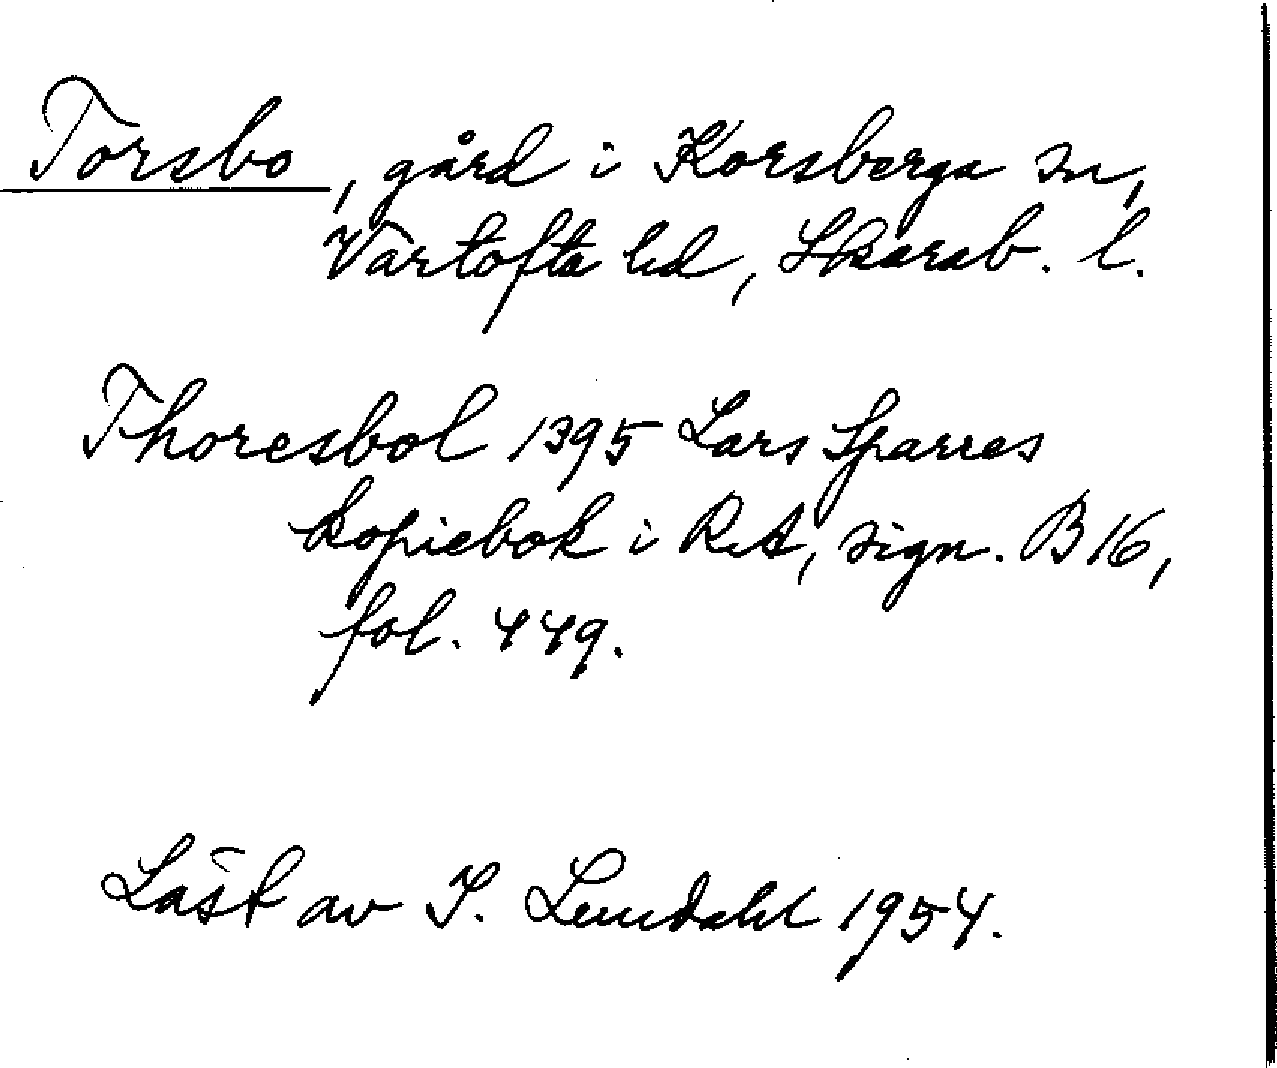 Torsbo, gård i Korsberga sn,
Vartofta hd, Skarab. l.
Thoresbol 1395 Lars Sparres
kopiebok i RA, sign. B 16,
fol. 449.
Läst av I. Lundahl 1954.